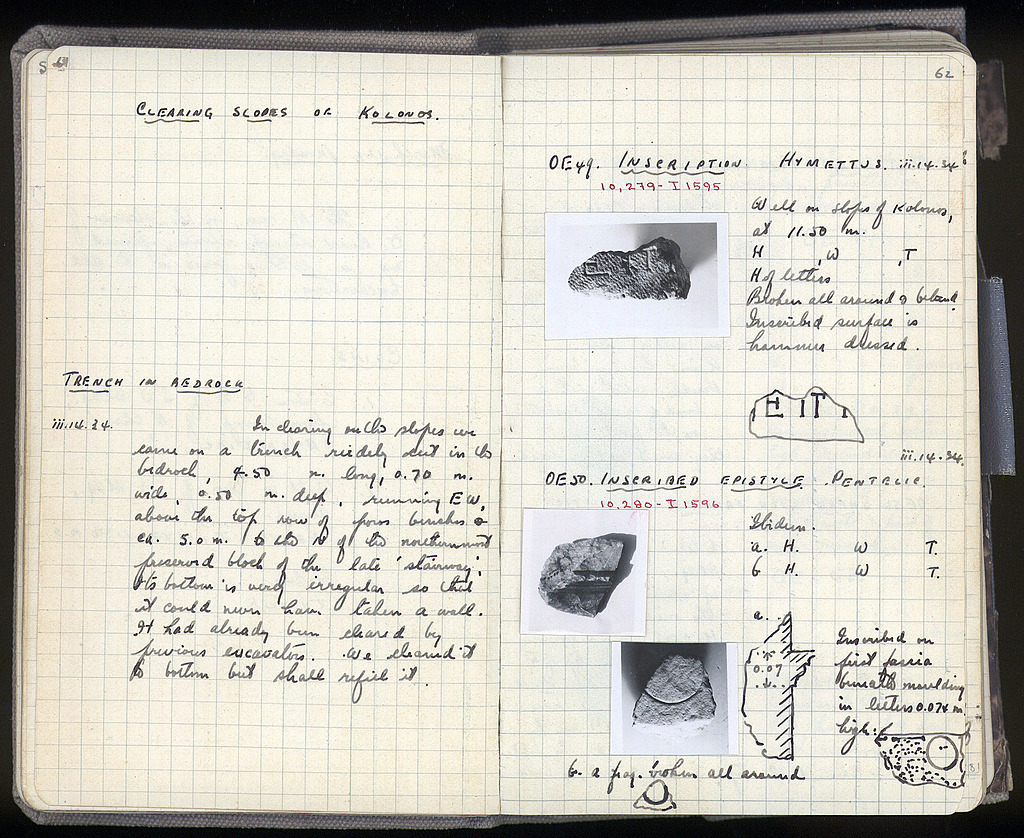 CLEARING SLOPES OF KOLONOS.
TRENCH IN BEDROCK
iii.14.34.
In clearing on the slopes we
came on a trench rudely cut in the
bedrock, 4.50 m. long, 0.70 m.
wide, 0.50 m. deep, running EW,
above the top row of poros benches &
ca. 5.0 m. to the N of the northernmost
preserved block of the late 'stairway'.
Its bottom is very irregular so that
it could never have taken a wall.
It had already been cleared by
previous excavators. We cleaned it
to bottom but shall refill it.
62
OE49. INSCRIPTION. HYMETTUS. iii.14.34
10,279 - I 1595
Well on slopes of Kolonos,
at 11.50 m.
H ,W ,T
H of letters
Broken all around & behind.
Inscribed surface is
hammer dressed.
EIT
iii.14.34.
OE50. INSCRIBED EPISTYLE. PENTELIC.
10,280 - I 1596
Ibidem.
a. H. W T.
b H. W T.
a.
0.07
Inscribed on
first fascia
beneath moulding
in letters 0.074 m.
high:
b. a frag. broken all around